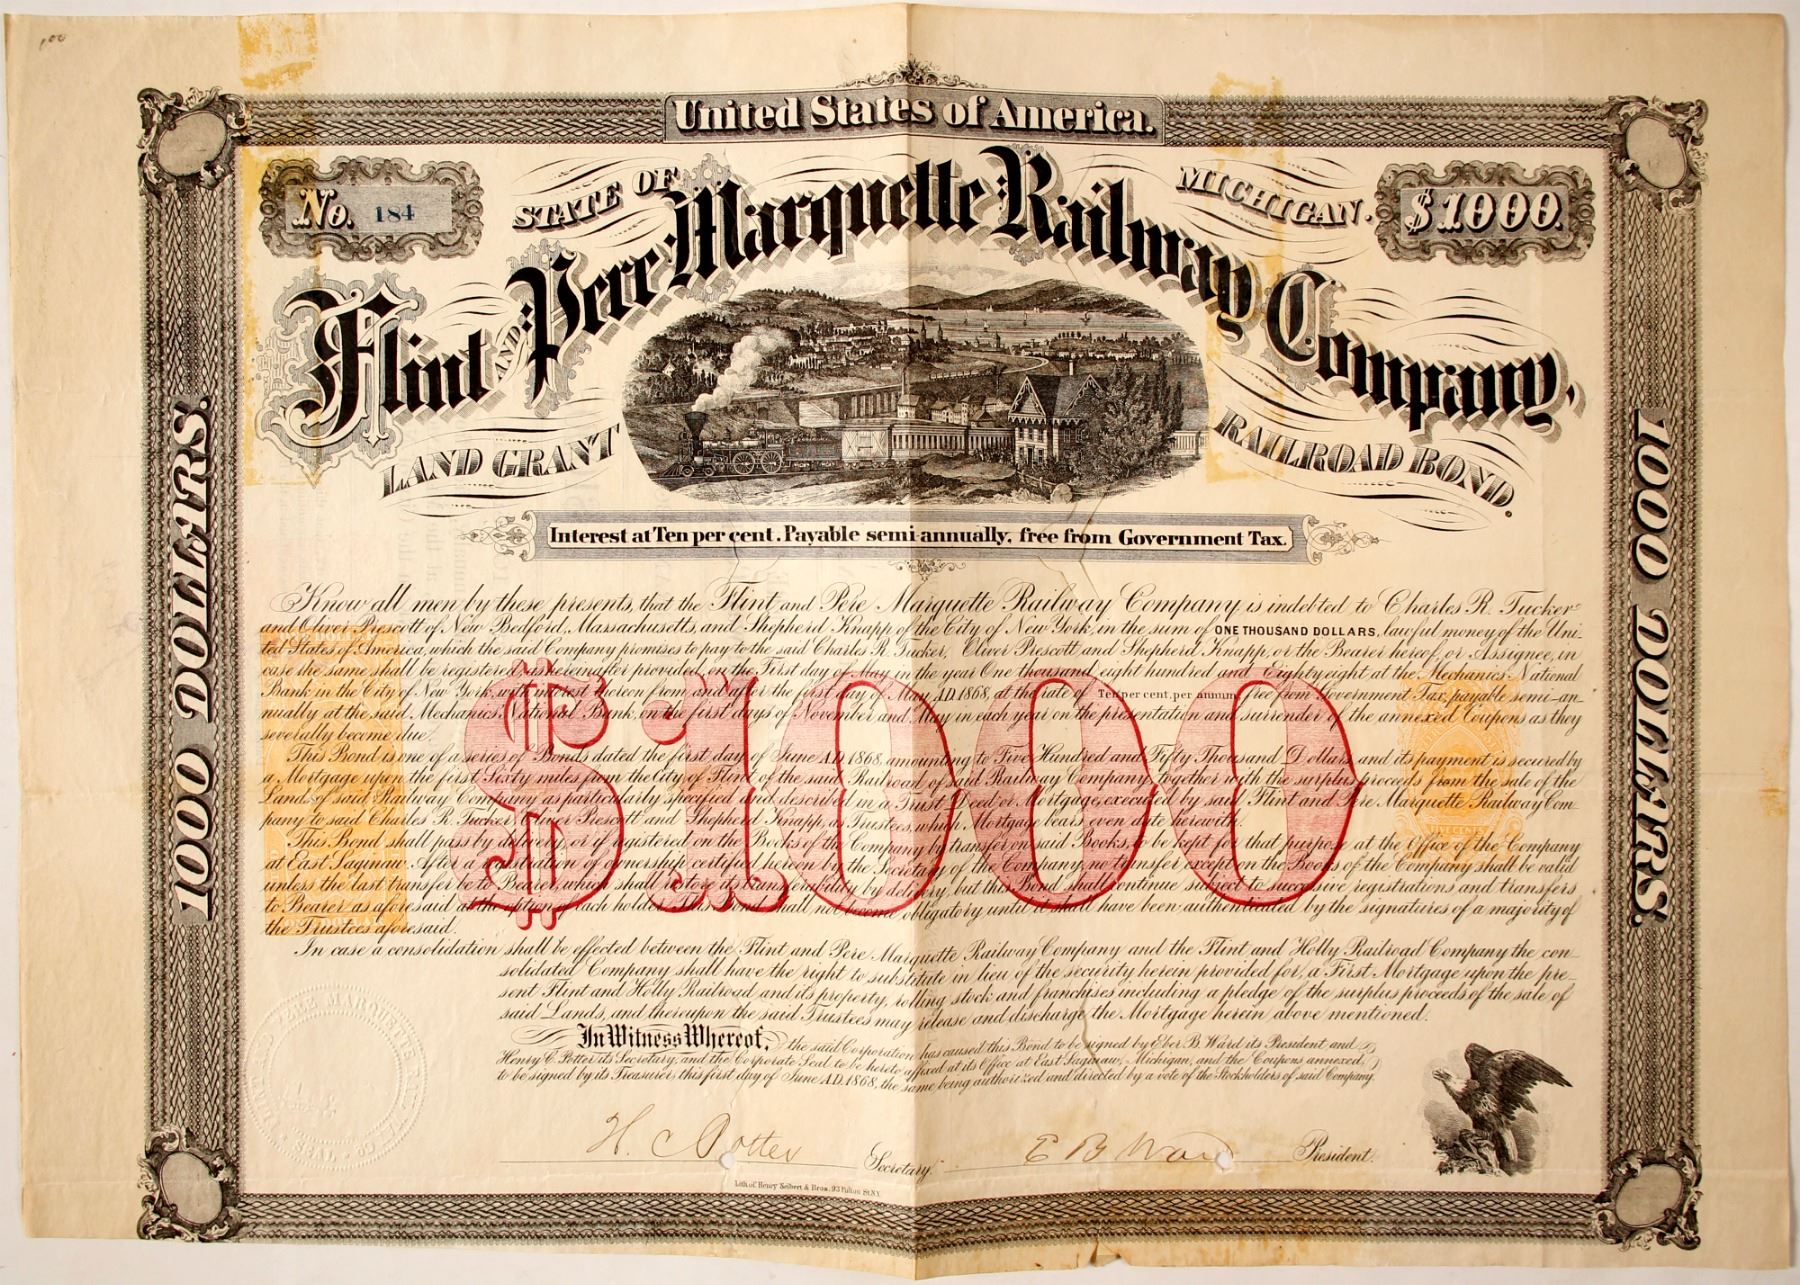 100
United States of America.
No. 184
STATE OF
MICHIGAN.
$1000.
Flint AND Pere Marquette Railway Company,
LAND GRANT
RAILROAD BOND.
Interest at Ten per cent. Payable semi-annually, free from Government Tax.
1000 DOLLARS.
1000 DOLLARS.
Know all men by these presents, that the Flint and Pere Marquette Railway Company is indebted to Charles R. Tucker
and Oliver Prescott of New Bedford, Massachusetts, and Shepherd Knapp of the City of New York, in the sum of ONE THOUSAND DOLLARS, lawful money of the Uni-
ted States of America, which the said Company promises to pay to the said Charles R. Tucker, Oliver Prescott and Shepherd Knapp, or the Bearer hereof, or Assignee, in
case the same shall be registered as hereinafter provided, on the First day of May, in the year One thousand eight hundred and Eighty eight at the Mechanics National
Bank in the City of New York, with interest thereon from and after the first day of May A.D. 1868, at the rate of Ten per cent, per annum, free from Government Tax, payable semi-an-
nually at the said Mechanics National Bank, on the first days of November and May in each year on the presentation and surrender of the annexed Coupons as they
severally become due.
This Bond is one of a series of Bonds dated the first day of June A.D. 1868, amounting to Five Hundred and Fifty Thousand Dollars and its payment is secured by
a Mortgage upon the first Sixty miles from the City of Flint of the said Railroad of said Railway Company, together with the surplus proceeds from the sale of the
Lands of said Railway Company as particularly specified and described in a Trust Deed or Mortgage, executed by said Flint and Pere Marquette Railway Com-
pany to said Charles R. Tucker, Oliver Prescott and Shepherd Knapp, as Trustees, which Mortgage bears even date herewith.
This Bond shall pass by delivery or if registered on the Books of the Company by transfer on said Books, to be kept for that purpose at the Office of the Company
at East Saginaw. After a registration of ownership certified hereon by the Secretary of the Company, no transfer except on the Books of the Company shall be valid
unless the last transfer be to Bearer, which shall restore its transferability by delivery, but this Bond shall continue subject to successive registrations and transfers
to Bearer as aforesaid at the option of each holder. This Bond shall not become obligatory until it shall have been authenticated by the signatures of a majority of
the Trustees aforesaid.
$1000
In case a consolidation shall be effected between the Flint and Pere Marquette Railway Company and the Flint and Holly Railroad Company the con-
solidated Company shall have the right to substitute in lieu of the security herein provided for, a First Mortgage upon the pre-
sent Flint and Holly Railroad and its property, rolling stock and franchises including a pledge of the surplus proceeds of the sale of
said Lands, and thereupon the said Trustees may release and discharge the Mortgage herein above mentioned.
In Witness Whereof, the said Corporation has caused this Bond to be signed by Eber B. Ward its President and
Henry C. Potter its Secretary, and the Corporate Seal to be hereto affixed at its Office at East Saginaw, Michigan, and the Coupons annexed,
to be signed by its Treasurer, this first day of June A.D. 1868, the same being authorized and directed by a vote of the Stockholders of said Company.
H. C. Potter Secretary.
E B Ward President.
Lith. of Henry Seibert & Bros. 93 Fulton St. N.Y.